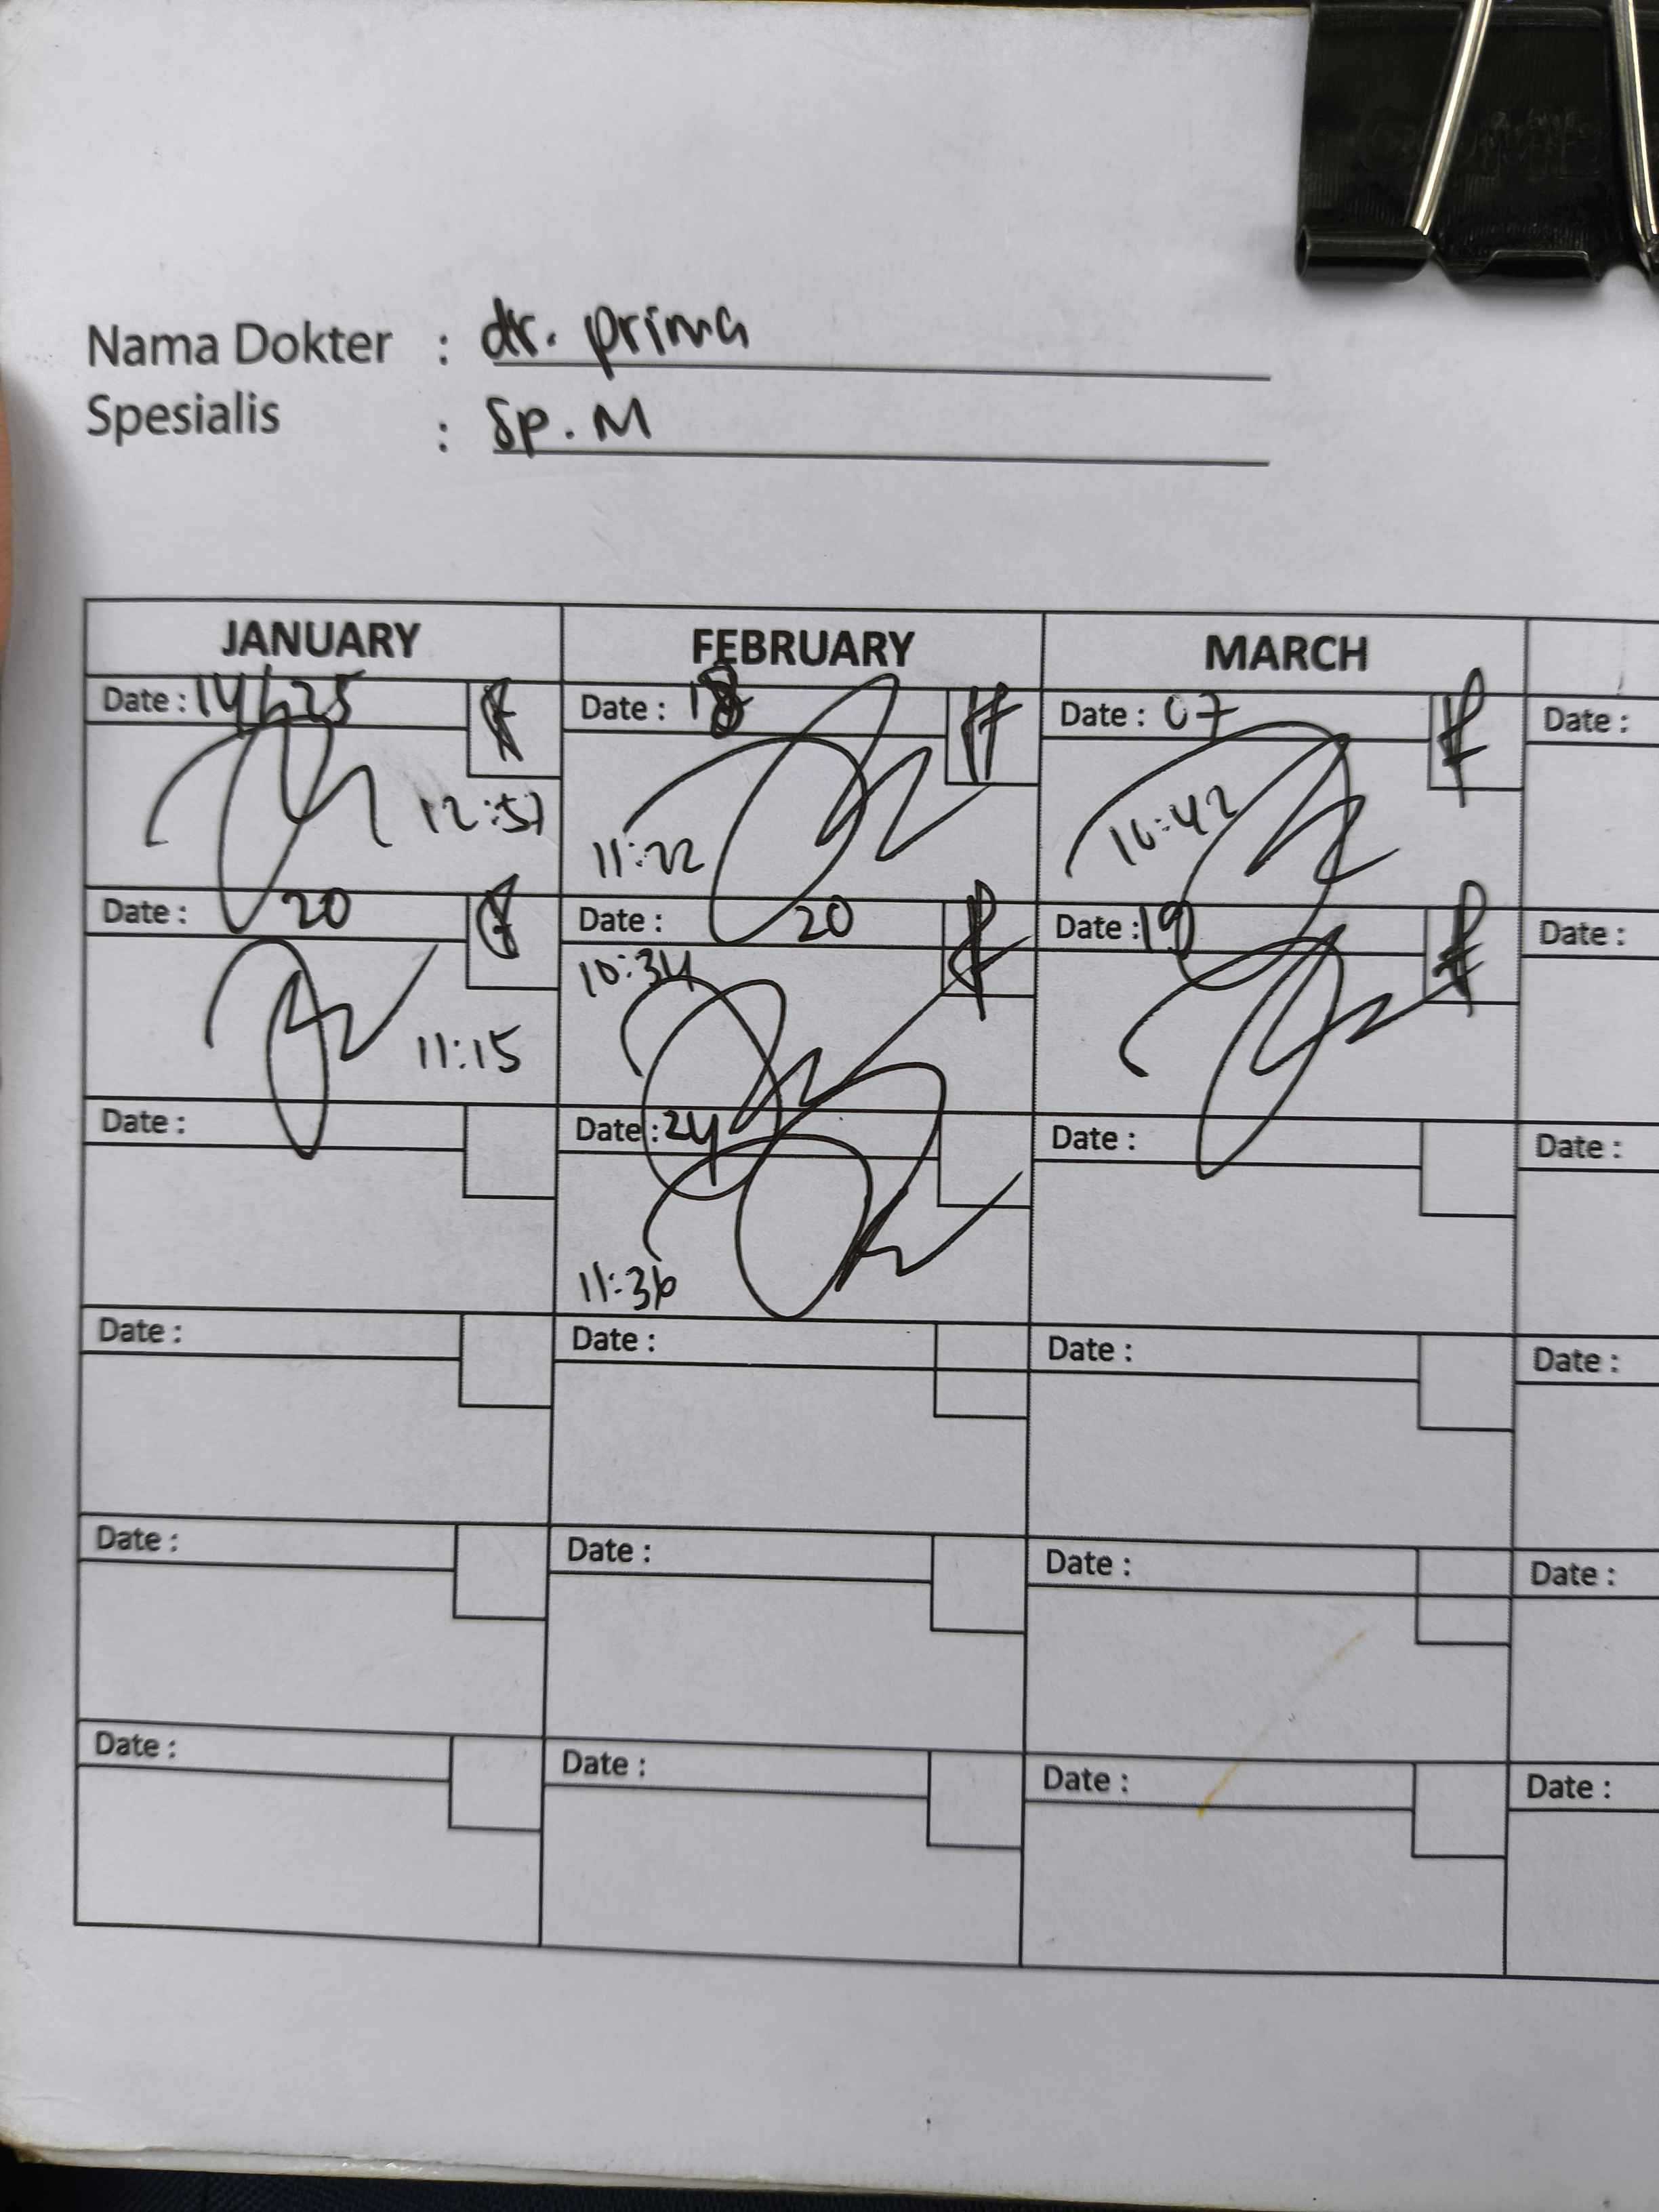 Nama Dokter : dr. prima
Spesialis : Sp. M
JANUARY FEBRUARY MARCH
Date : 14/ 25 Date : 18 Date : 07 Date :
12:57 11:22 10:42
Date : 20 Date : 20 Date : 19 Date :
11:15 10:34
Date : Date : 24 Date : Date :
11:36
Date : Date : Date : Date :
Date : Date : Date : Date :
Date : Date : Date : Date :